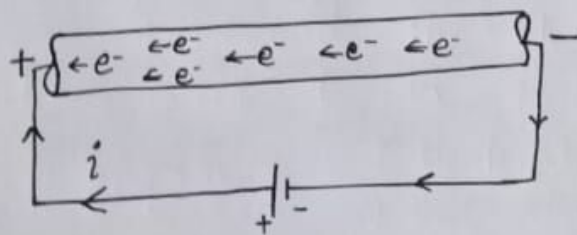 ← e⁻ ← e⁻
+ ← e⁻ ← e⁻ ← e⁻ ← e⁻ −
i
+ -